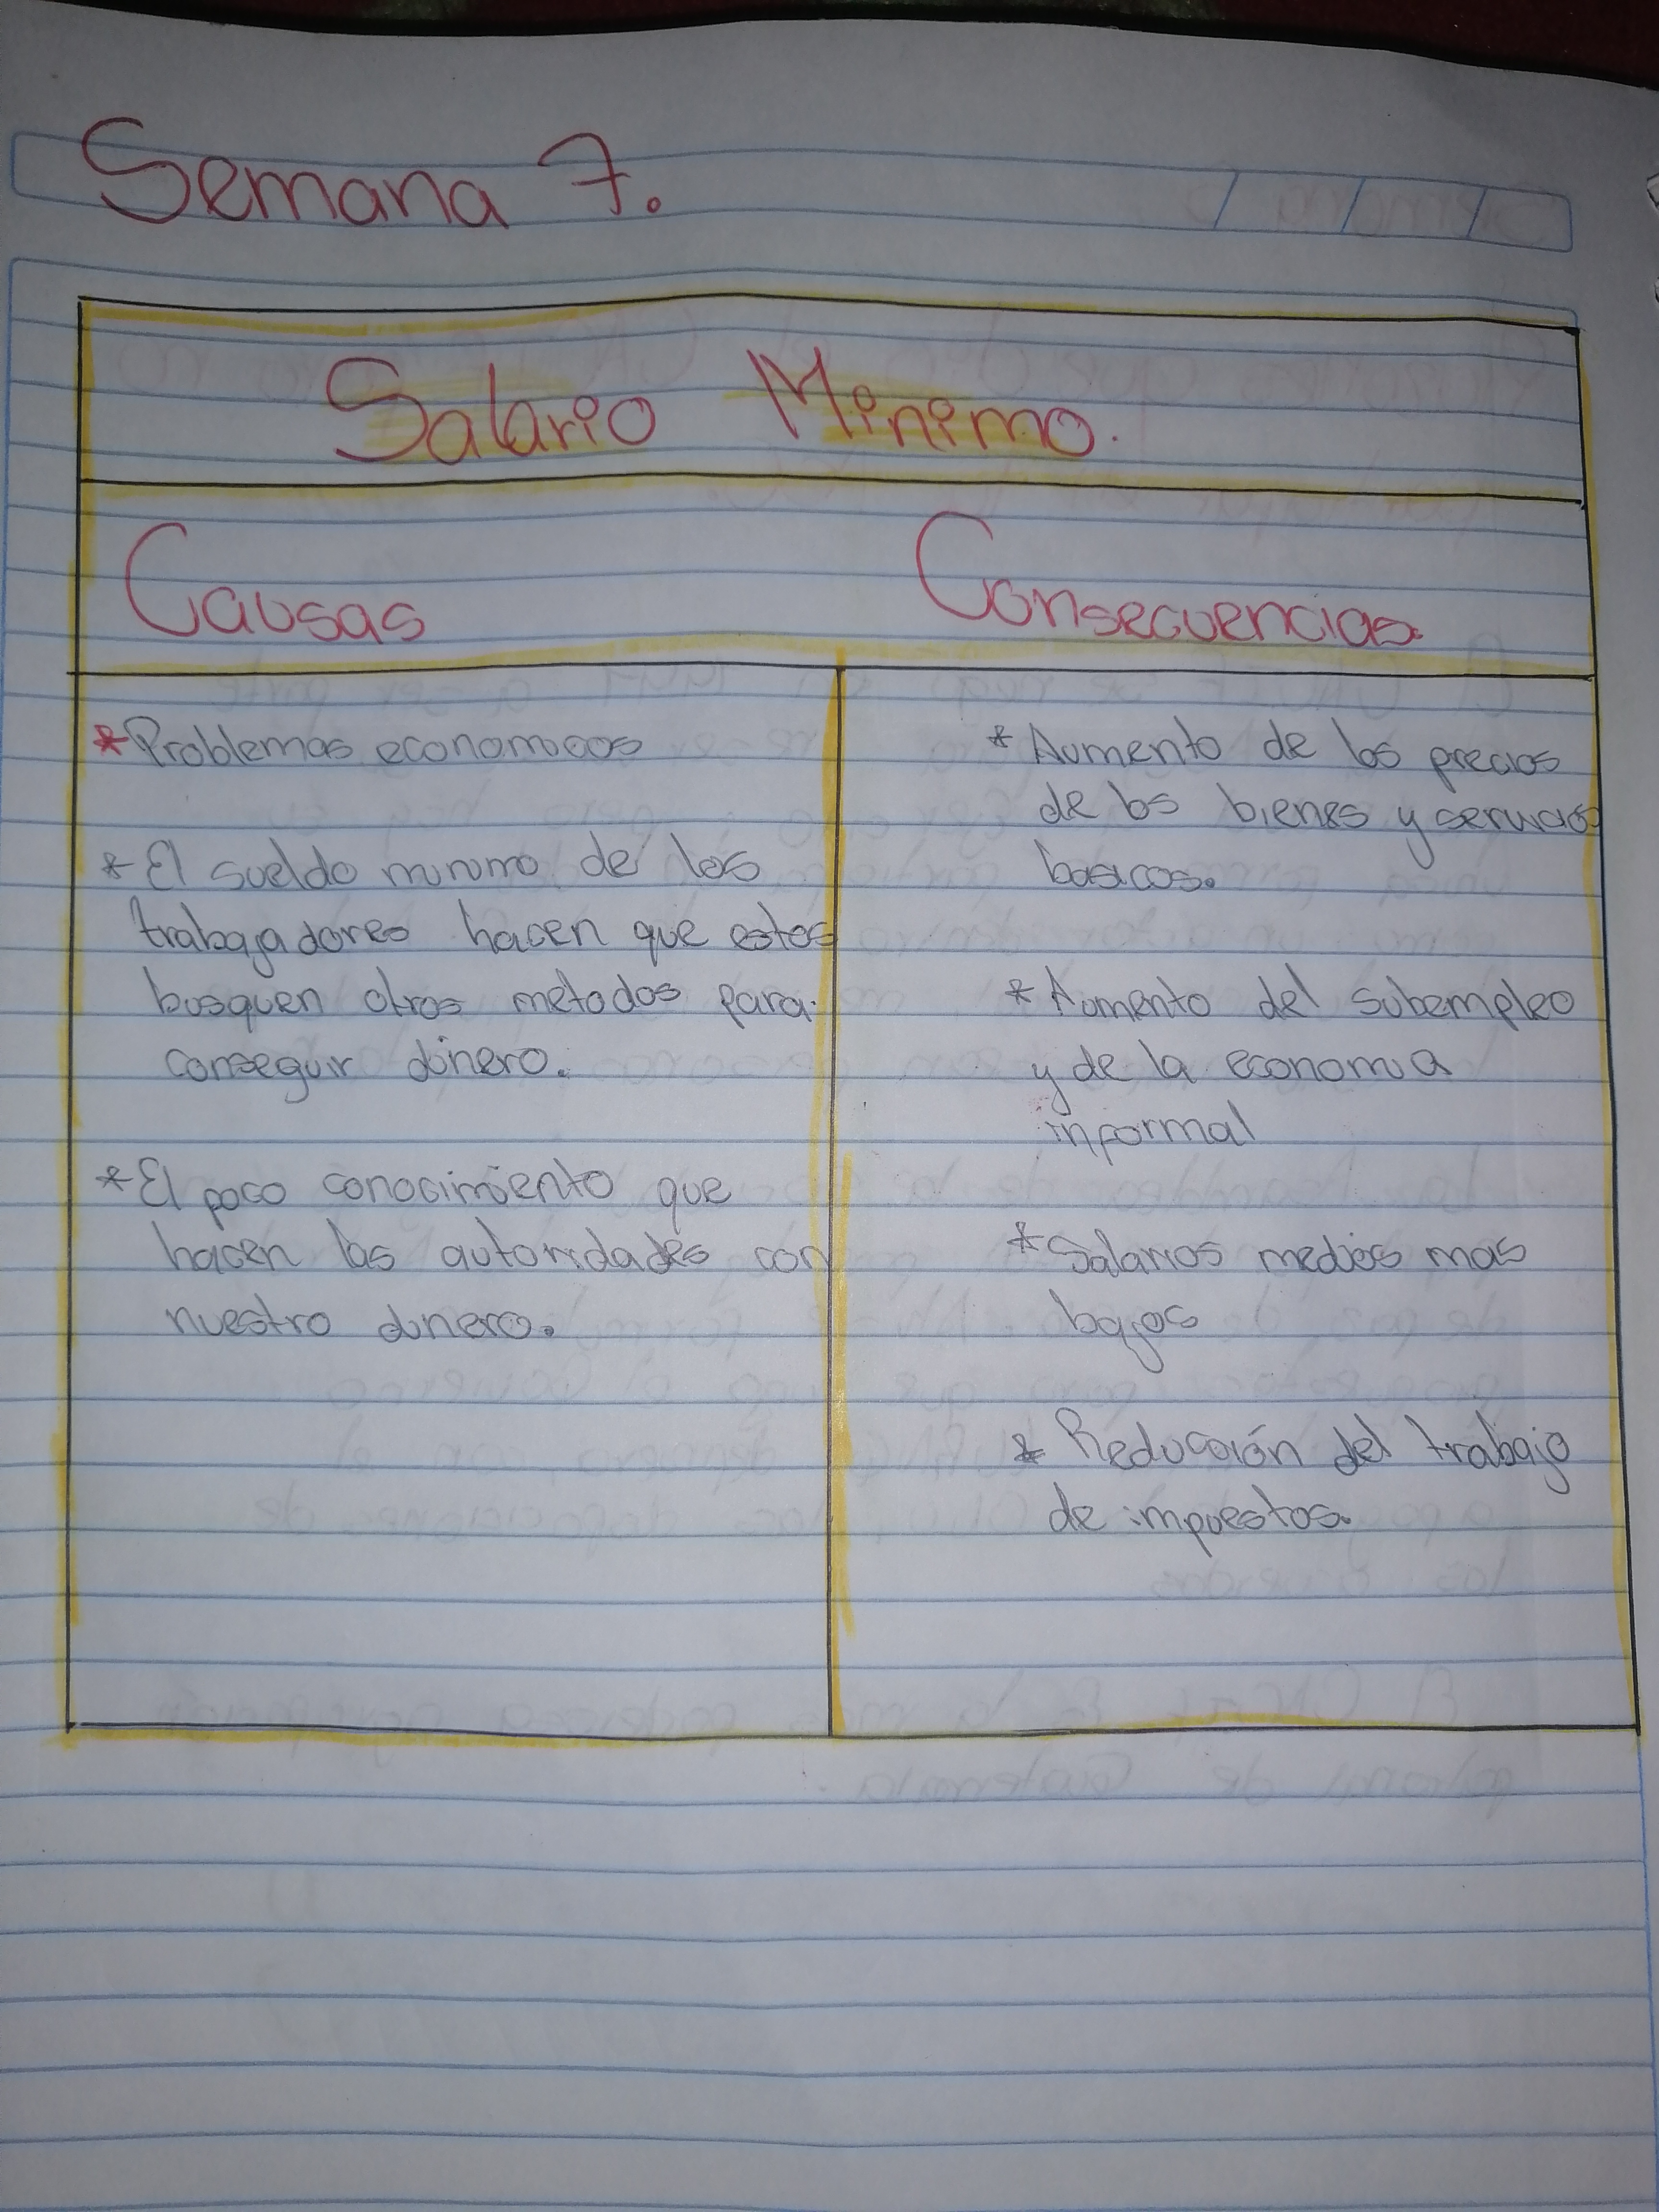 Semana 7.
Salario Minimo.
Causas
Consecuencias.
*Problemas economicos
*El sueldo minimo de los
trabajadores hacen que estos
busquen otros metodos para
conseguir dinero.
*El poco conocimiento que
hacen las autoridades con
nuestro dinero.
*Aumento de los precios
de los bienes y servicios
basicos.
*Aumento del subempleo
y de la economia
informal
*Salarios medios mas
bajos
*Reducción del trabajo
de impuestos.